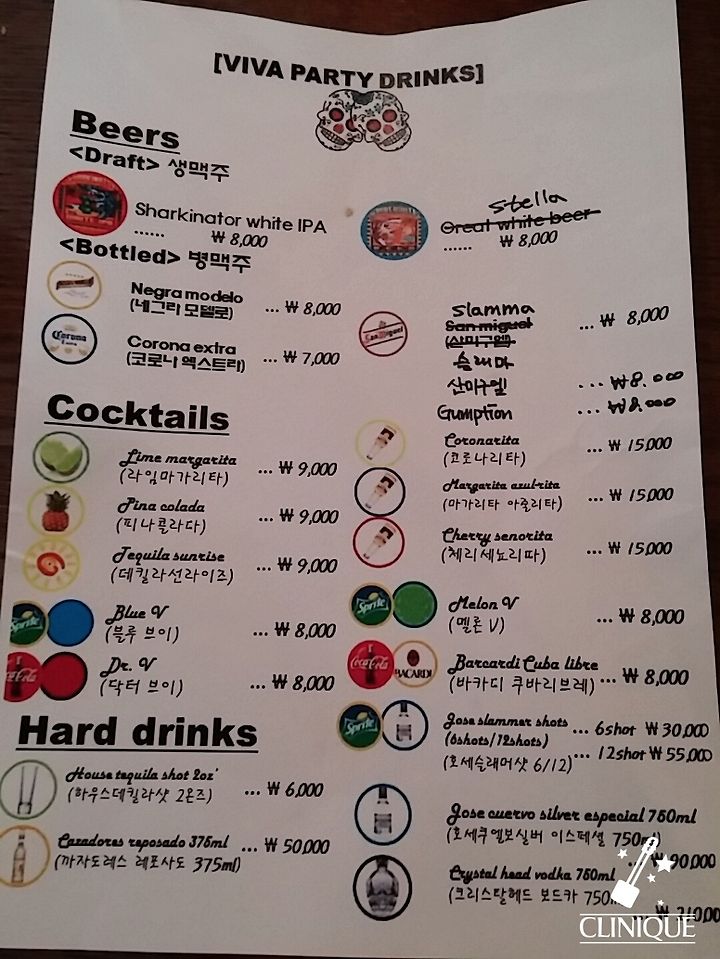 [VIVA PARTY DRINKS]
Beers
<Draft> 생맥주
Sharkinator white IPA
...... ₩ 8,000
Stella
Oreal white beer
...... ₩ 8,000
<Bottled> 병맥주
Negra modelo
(네그라 모델로) ... ₩ 8,000
Corona extra
(코로나 엑스트라) ... ₩ 7,000
San Miguel
Slamma
San miguel
(산미구엘) ... ₩ 8,000
슬래마
산미구엘 ... ₩8.000
Gumption ... ₩8.000
Corona
Cocktails
Lime margarita
(라임마가리타) ... ₩ 9,000
Pina colada
(피나콜라다) ... ₩ 9,000
Tequila sunrise
(데킬라선라이즈) ... ₩ 9,000
Sprite
Blue V
(블루 브이) ... ₩ 8,000
Coca-Cola
Dr. V
(닥터 브이) ... ₩ 8,000
Coronarita
(코로나리타) ... ₩ 15,000
Margarita azul-rita
(마가리타 아줄리타) ... ₩ 15,000
Cherry senorita
(체리세뇨리따) ... ₩ 15,000
Sprite
Melon V
(멜론 V) ... ₩ 8,000
Coca-Cola BACARDI
Barcardi Cuba libre
(바카디 쿠바리브레) ... ₩ 8,000
Sprite
Jose slammer shots ... 6shot ₩ 30,000
(6shots/12shots)
(호세슬래머샷 6/12) ... 12shot ₩ 55,000
Hard drinks
House tequila shot 2oz'
(하우스데킬라샷 2온즈) ... ₩ 6,000
Cazadores reposado 375ml
(까자도레스 레포사도 375ml) ... ₩ 50,000
Jose cuervo silver especial 750ml
(호세쿠엘보실버 이스페셜 750ml)
... ₩ 90,000
Crystal head vodka 750ml
(크리스탈헤드 보드카 750ml)
... ₩ 210,000
CLINIQUE